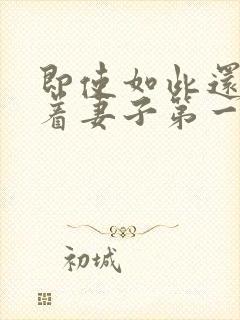 即使如此還
着妻子第一
初城